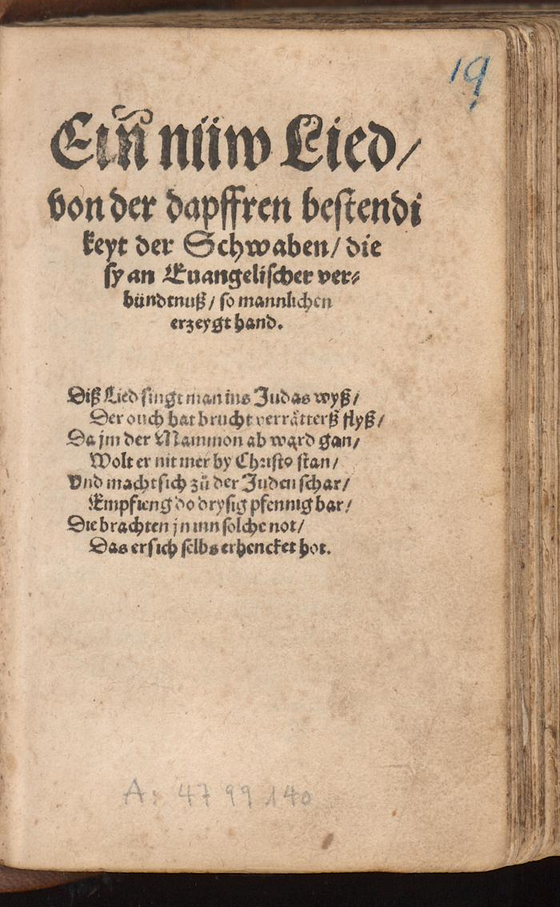 19
Ein̄ nüw Lied/
von der dapffren bestendi
keyt der Schwaben/ die
sy an Euangelischer ver⸗
bündtnuß/ so mannlichen
erzeygt hand.
Diß Lied singt man ins Judas wyß/
Der ouch hat brucht verrätterß flyß/
Da jm der Mammon ab ward gan/
Wolt er nit mer by Christo stan/
Vnd macht sich zů der Juden schar/
Empfieng do drysig pfennig bar/
Die brachten jn inn solche not/
Das er sich selbs erhencket hot.
A: 4799140